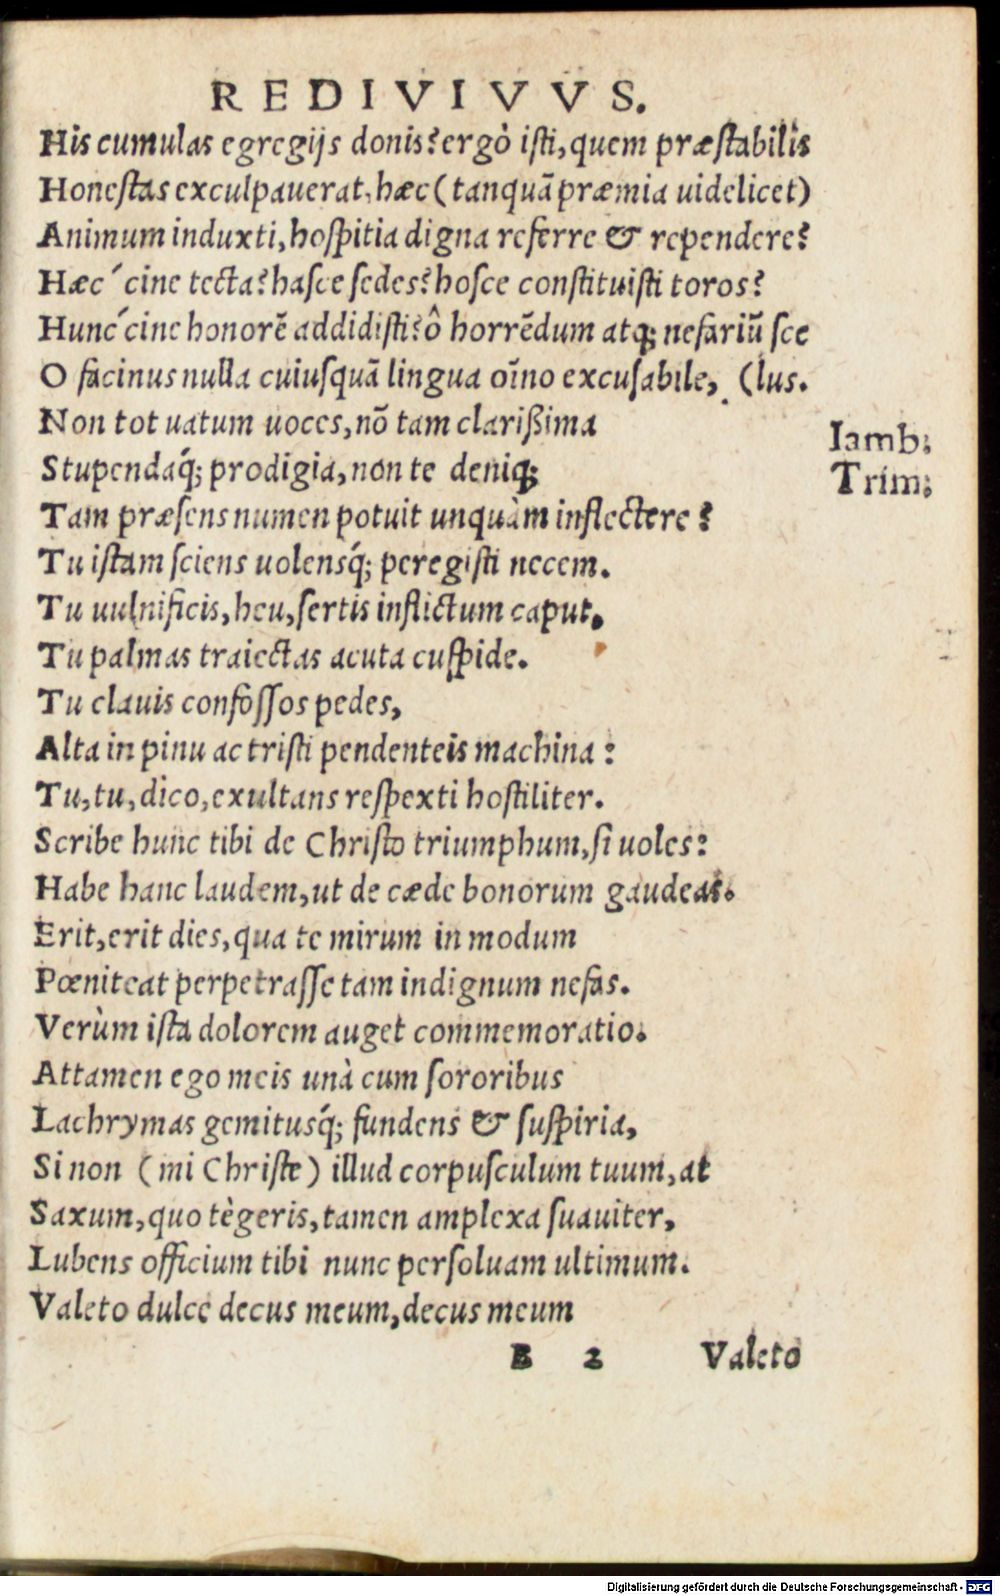 REDIVIVVS.
His cumulas egregijs donis? ergò isti, quem præstabilis
Honestas exculpauerat, hæc (tanquã præmia uidelicet)
Animum induxti, hospitia digna referre & rependere?
Hæc´cine tecta? hasce sedes? hosce constituisti toros?
Hunc´cine honorẽ addidisti? ô horrẽdum atq; nefariũ sce
O facinus nulla cuiusquã lingua oĩno excusabile, (lus.
Non tot uatum uoces, nõ tam clarißima
Iamb.
Stupendaq́; prodigia, non te deniq;
Trim.
Tam præsens numen potuit unquàm inflectere?
Tu istam sciens uolensq́; peregisti necem.
Tu uulnificis, heu, sertis inflictum caput,
Tu palmas traiectas acuta cuspide.
Tu clauis confossos pedes,
Alta in pinu ac tristi pendenteis machina:
Tu, tu, dico, exultans respexti hostiliter.
Scribe hunc tibi de Christo triumphum, si uoles:
Habe hanc laudem, ut de cæde bonorum gaudeas.
Erit, erit dies, qua te mirum in modum
Pœniteat perpetrasse tam indignum nefas.
Verùm ista dolorem auget commemoratio.
Attamen ego meis unà cum sororibus
Lachrymas gemitusq́; fundens & suspiria,
Si non (mi Christe) illud corpusculum tuum, at
Saxum, quo tègeris, tamen amplexa suauiter,
Lubens officium tibi nunc persoluam ultimum.
Valeto dulce decus meum, decus meum
B 2 Valeto
Digitalisierung gefördert durch die Deutsche Forschungsgemeinschaft - DFG